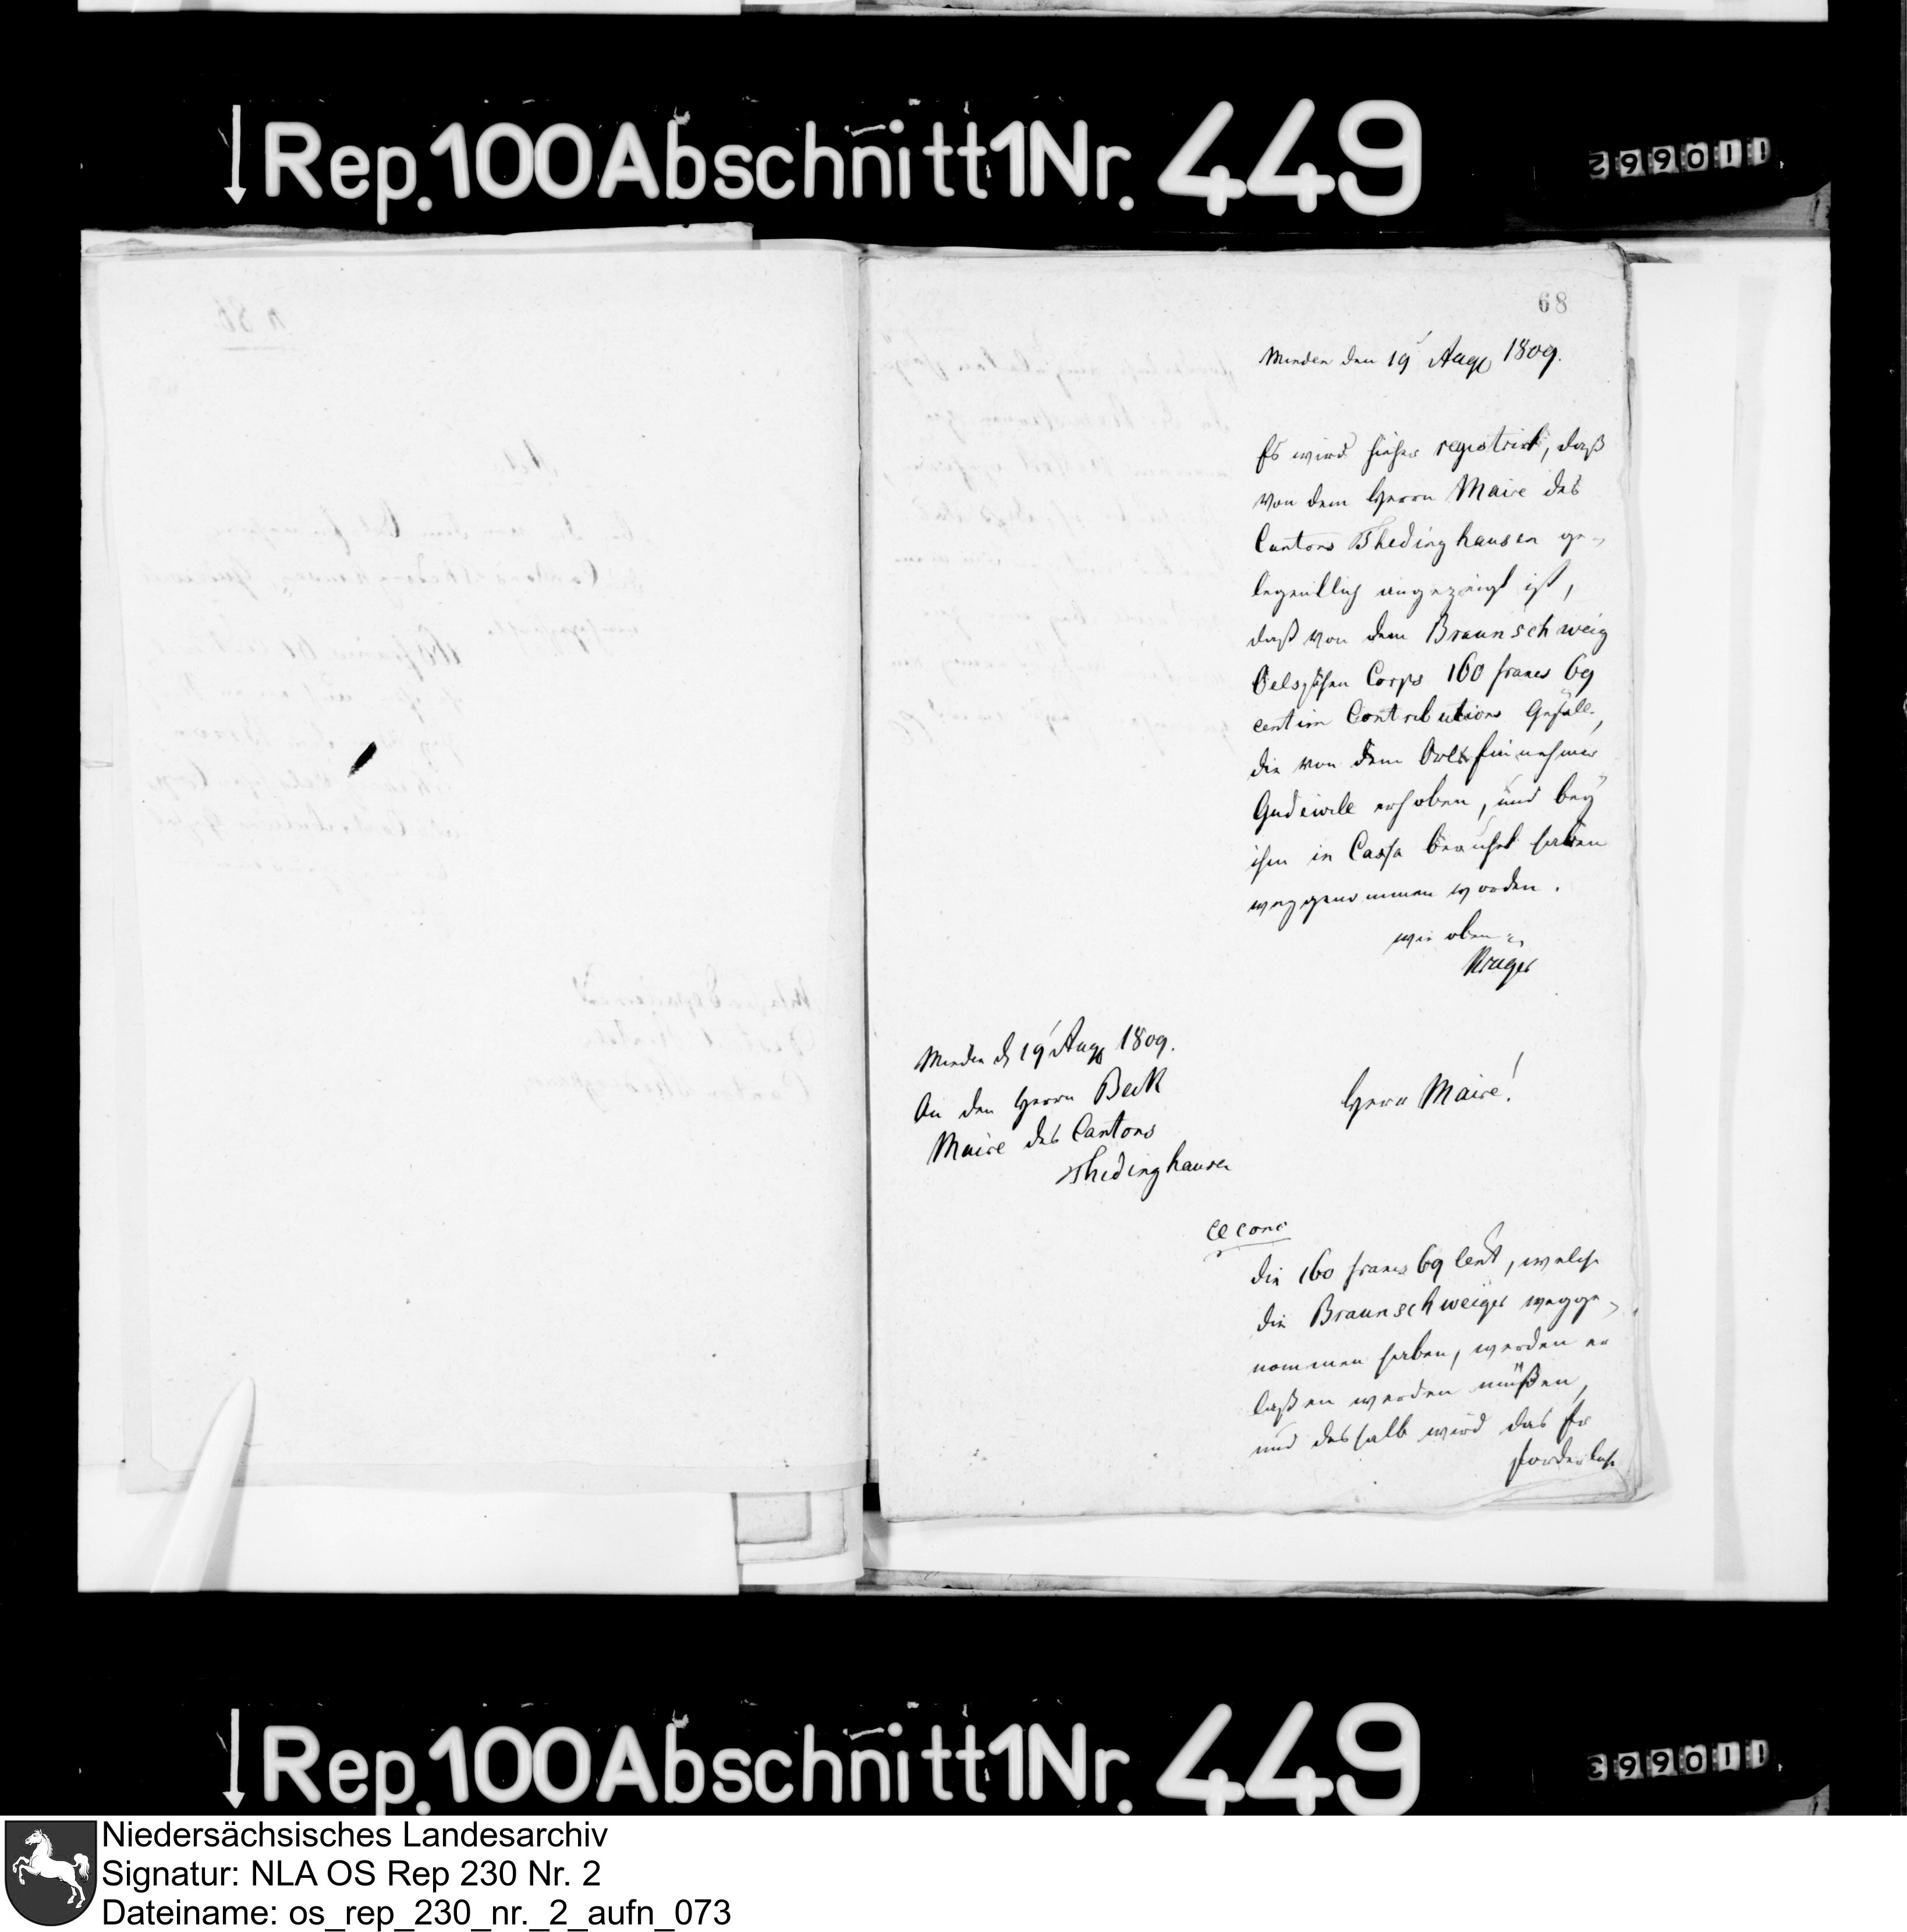 Rep. 100 Abschnitt 1 Nr. 449
68
Minden den 19 Aug 1809.
Es wird hieher registrirt, daß
von dem Herrn Maire des
Cantons Thedinghausen ge-
legentlich angezeigt ist,
daß von dem Braunschweig
Oelsschen Corps 160 francs 69
centim Contributions Gefälle,
die von dem Orts Einnehmer
Gudewill erhoben, und bey
ihm in Cassa beruhet haben
weggenommen worden.
wie oben
Krüger
Minden d 19 Aug 1809.
An den Herrn Beck
Maire des Cantons
Thedinghausen
Herr Maire!
Die 160 francs 69 Cent, welche
die Braunschweiger wegge-
nommen haben, werden er
laßen werden müßen,
und deshalb wird das Er
forderliche
Rep. 100 Abschnitt 1 Nr. 449
Niedersächsisches Landesarchiv
Signatur: NLA OS Rep 230 Nr. 2
Dateiname: os_rep_230_nr._2_aufn_073